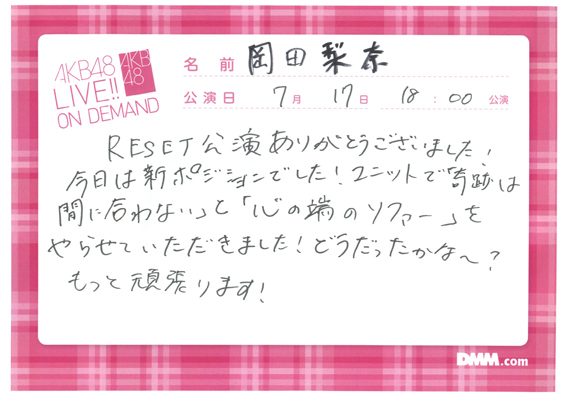 AKB48
LIVE!!
ON DEMAND
AKB
48
名前 岡田梨奈
公演日 7月 17日 18:00 公演
RESET公演ありがとうございました!
今日は新ポジションでした!ユニットで「奇跡は
間に合わない」と「心の端のソファー」を
やらせていただきました!どうだったかな~?
もっと頑張ります!
DMM.com